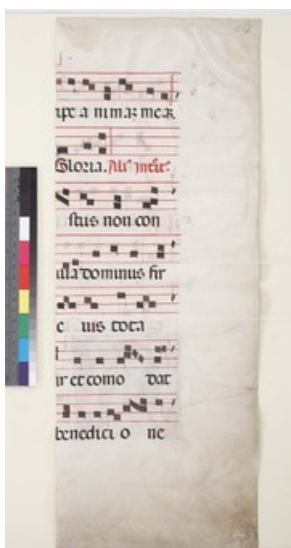 ipe animaz meaz
Gloria. Alius intr̄.
stus non con
dominus fir
e ius tota
ir et como dat
benedicio ne